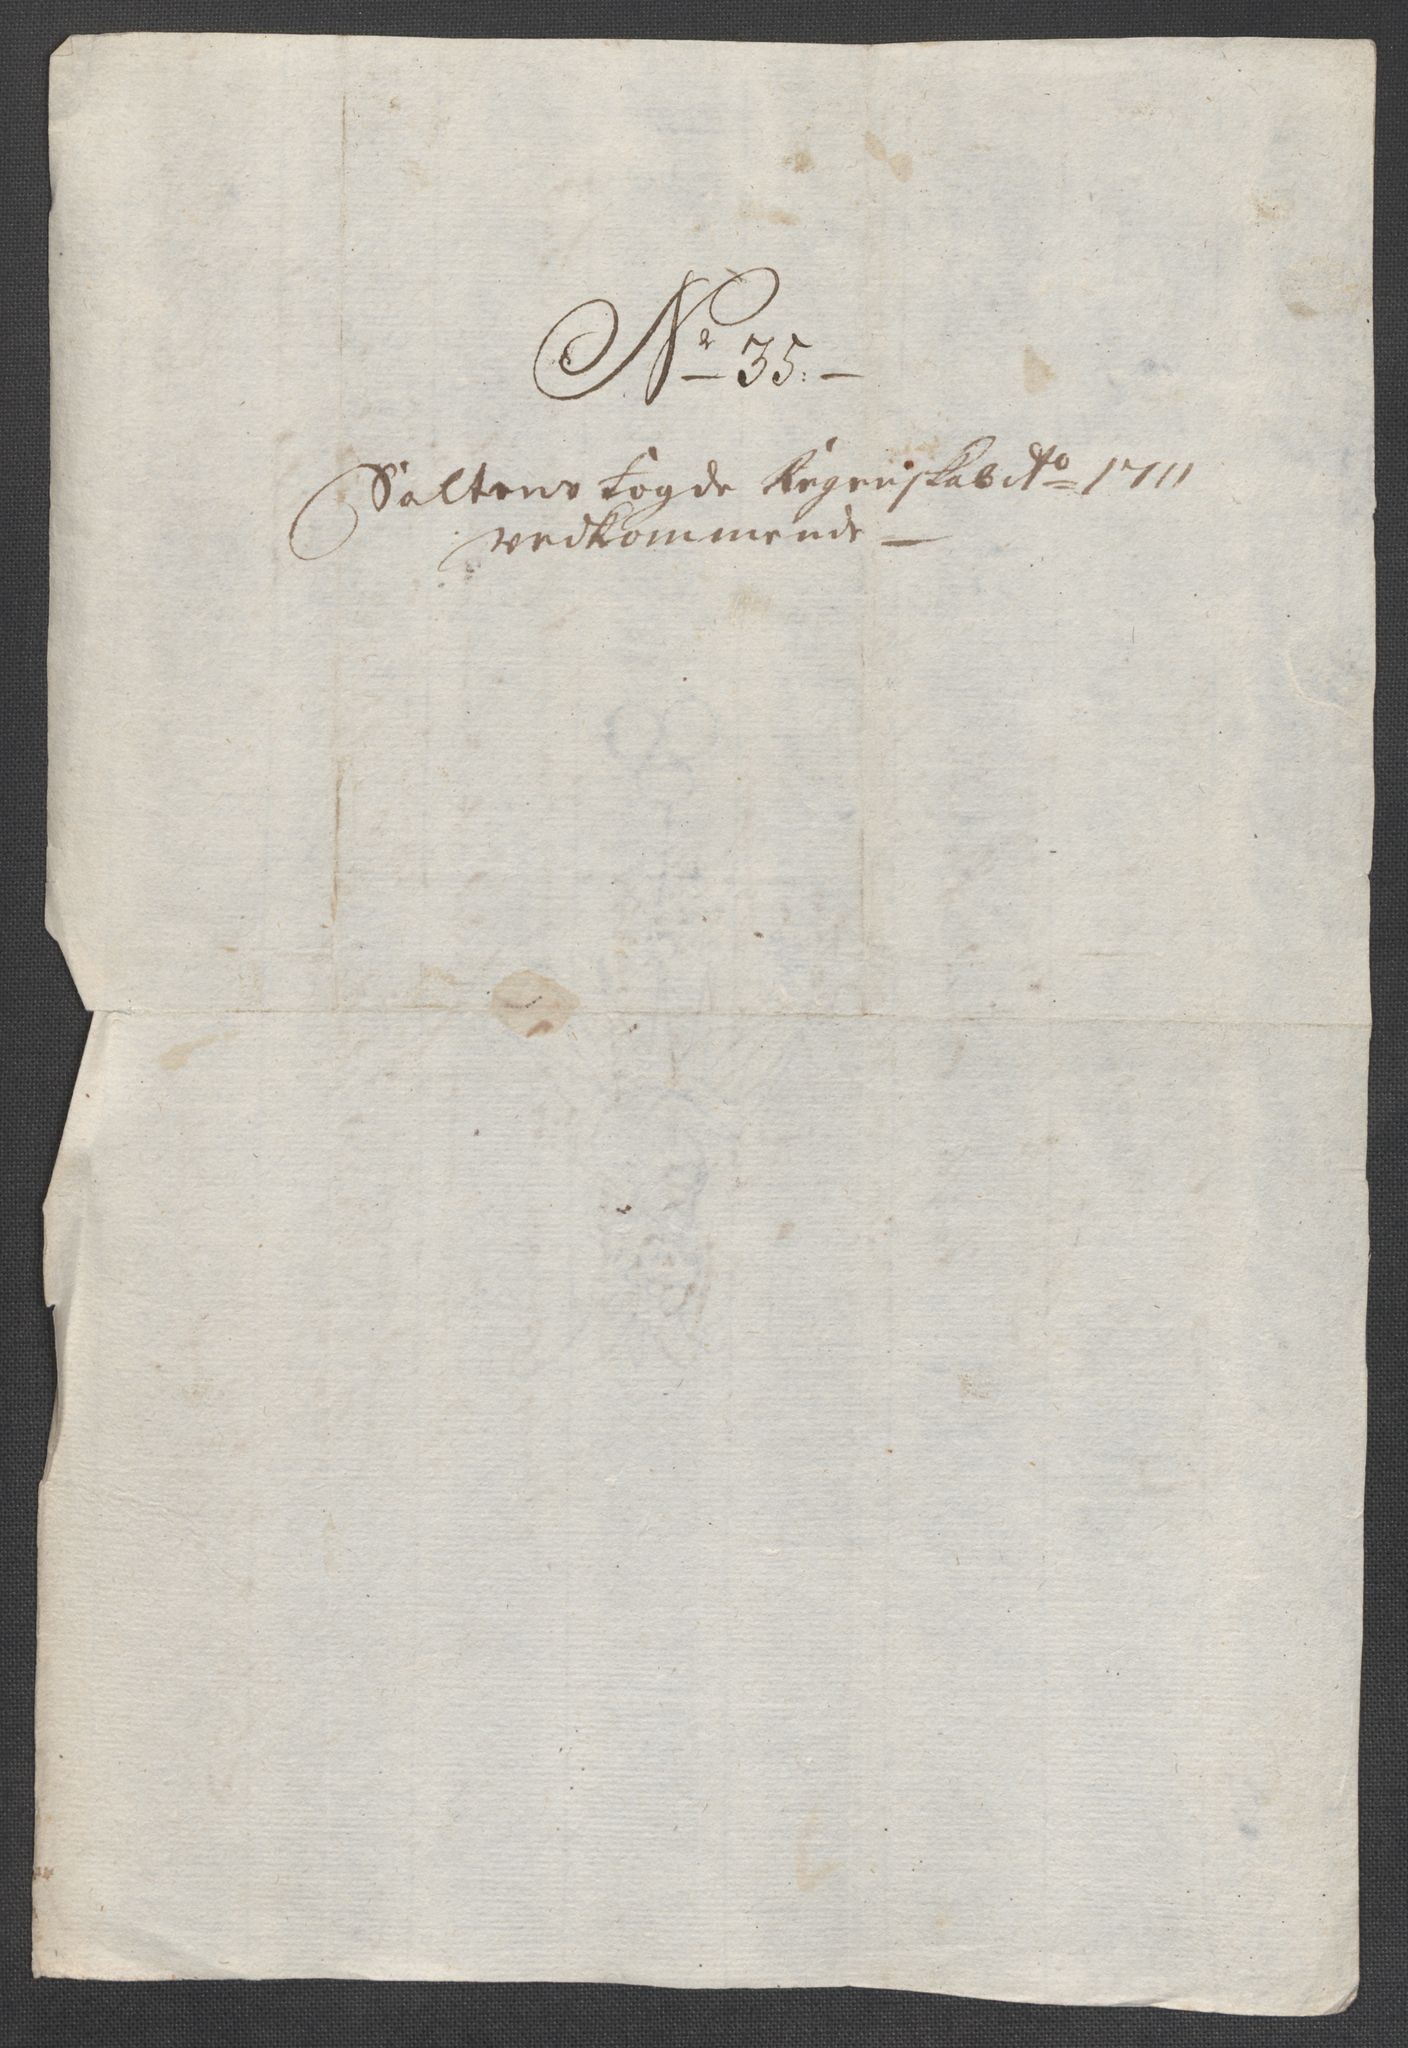 No 35.
Saltens fogde Regenskab Ao 1711
vedkommende